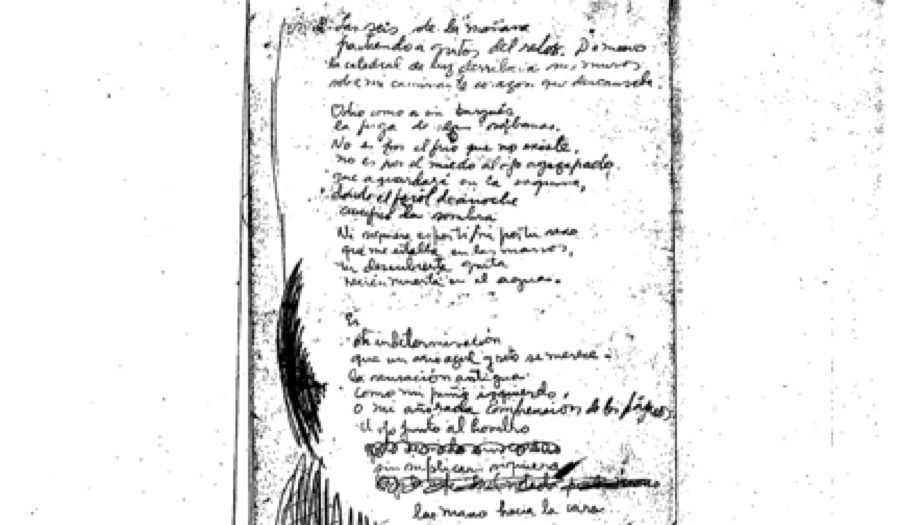 Las seis de la mañana
partiendo a gritos del reloj. Domano
la catedral de luz derriba sus muros
sobre mi caminante corazón que descansaba.
Odio como a un burgués
la fuga de sábanas.
No es por el frío que no existe,
no es por el miedo al ojo agazapado
que aguardará en la esquina,
donde el farol de anoche
crucificó la sombra
Ni siquiera es por ti/ni por tu seno
que me estalla en las manos,
tu descubierta
recién muerta en el
Es
la indeterminación
que un azul y roto se merece.
la sensación antigua
como mi puño izquierdo,
O mi añorada comprensión de los pájaros
el ojo junto al hombro
sin suplicar siquiera
las mano hacia la cara